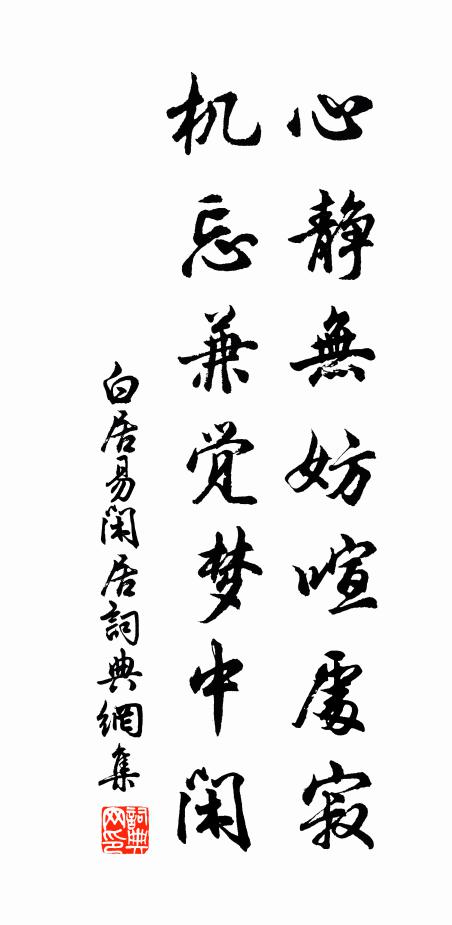 心靜無妨喧處寂
机忘兼觉梦中闲
白居易閑居詞典網集
詞典網印